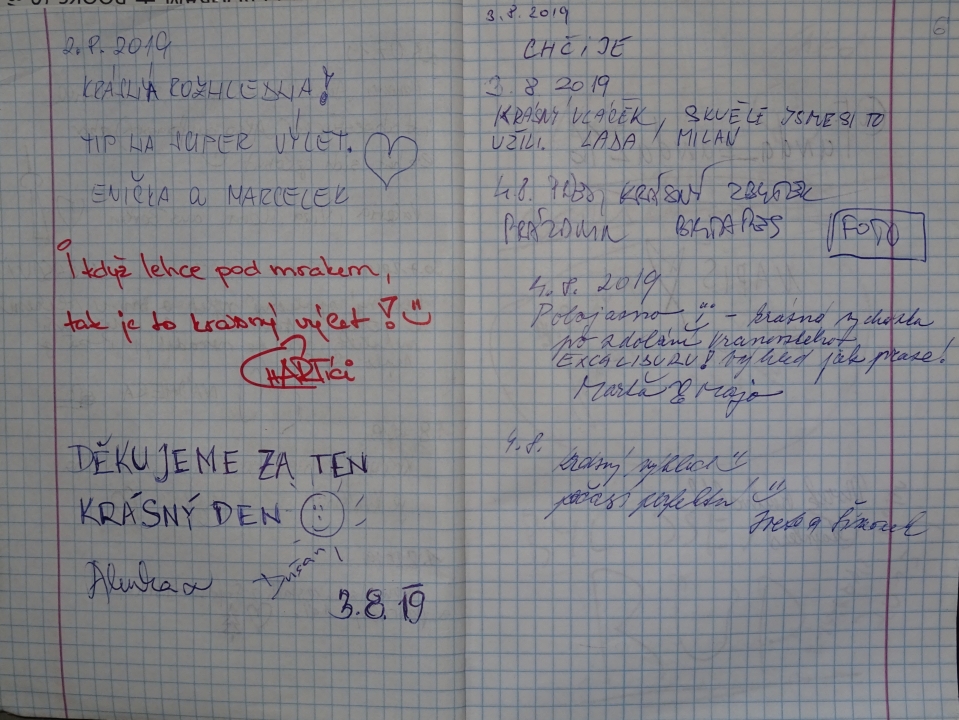 2.8. 2019
KRÁSNÁ ROZHLEDNA!
TIP NA SUPER VÝLET.
ENIČKA a MARCELEK
I když lehce pod mrakem,
tak je to krásný výlet!
HARTíci
DĚKUJEME ZA TEN
KRÁSNÝ DEN
Alenka a Dušan
3.8.19
3.8.2019
CHČIJE
3.8 2019
KRÁSNÝ VLÁČEK, SKVĚLE JSME SI TO
UŽILI. LADA, MILAN
4.8. KRÁSNÝ ZBYTEK
PRÁZDNIN
FOTO
4.8. 2019
Polojasno - krásná vycházka
po zdolání
EXCALIBURU! Výhled jak prase!
& Maja
4.8.
krásný výhled
počasí perfektní
6